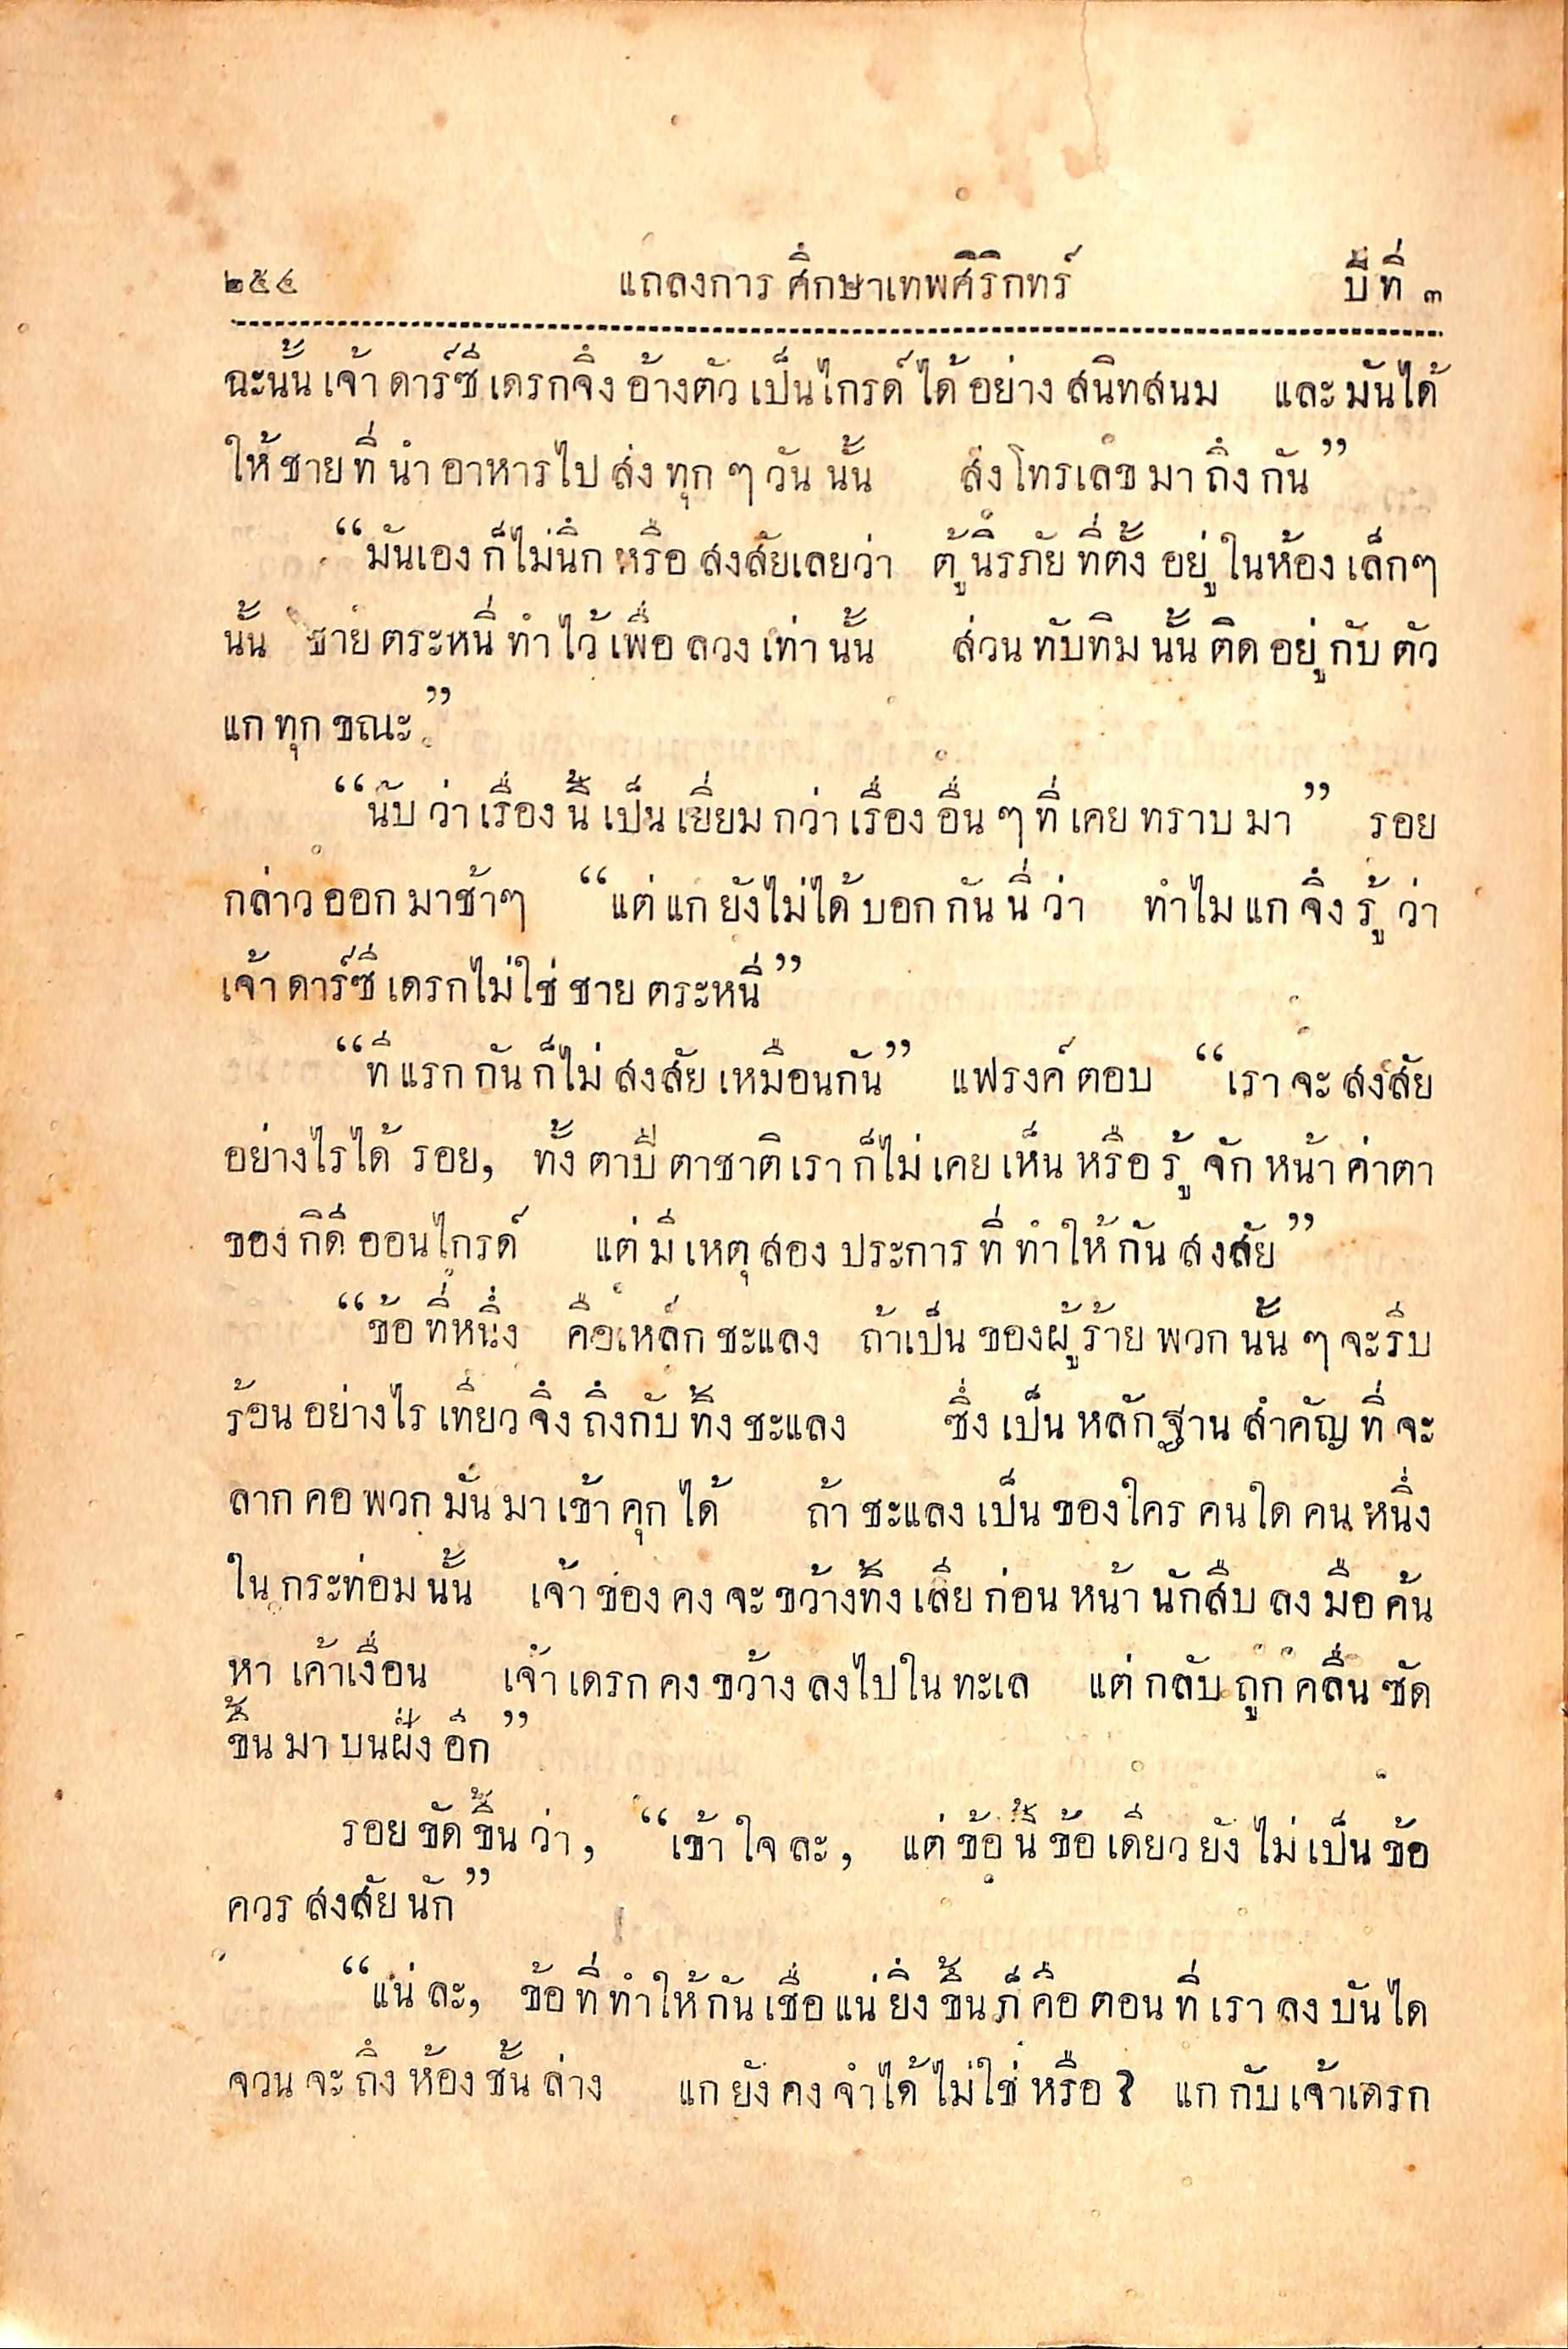 ๒๕๔ แถลงการ ศึกษาเทพศิริทร์ ปีที่ ๓
ฉะนั้น เจ้า ดาร์ซี เดรกจึง อ้างตัว เป็นไกรด์ ได้ อย่าง สนิทสนม และ มันได้
ให้ ชาย ที่ นำ อาหารไป ส่ง ทุก ๆ วัน นั้น ส่ง โทรเลข มา ถึง กัน”
“มันเอง ก็ไม่นึก หรือ สงสัยเลยว่า ตู้นิรภัย ที่ตั้ง อยู่ ในห้อง เล็กๆ
นั้น ชาย ตระหนี่ ทำ ไว้ เพื่อ ลวง เท่า นั้น ส่วน ทับทิม นั้น ติด อยู่ กับ ตัว
แก ทุก ขณะ”
“นับ ว่า เรื่อง นี้ เป็น เยี่ยม กว่า เรื่อง อื่น ๆ ที่ เคย ทราบ มา” รอย
กล่าว ออก มาช้าๆ “แต่ แก ยังไม่ได้ บอก กัน นี่ ว่า ทำไม แก จึง รู้ ว่า
เจ้า ดาร์ซี เดรกไม่ใช่ ชาย ตระหนี่”
“ที แรก กัน ก็ไม่ สงสัย เหมือนกัน” แฟรงค์ ตอบ “เรา จะ สงสัย
อย่างไรได้ รอย, ทั้ง ตาปี ตาชาติ เรา ก็ไม่ เคย เห็น หรือ รู้ จัก หน้า ค่าตา
ของ กิดี ออนไกรด์ แต่ มี เหตุ สอง ประการ ที่ ทำให้ กัน สงสัย”
“ข้อ ที่หนึ่ง คือเหล็ก ชะแลง ถ้าเป็น ของผู้ร้าย พวก นั้น ๆ จะรีบ
ร้อน อย่างไร เทียว จึง ถึงกับ ทิ้ง ชะแลง ซึ่ง เป็น หลักฐาน สำคัญ ที่ จะ
ลาก คอ พวก มัน มา เข้า คุก ได้ ถ้า ชะแลง เป็น ของใคร คนใด คน หนึ่ง
ใน กระท่อม นั้น เจ้า ของ คง จะ ขว้างทิ้ง เสีย ก่อน หน้า นักสืบ ลง มือ ค้น
หา เค้าเงื่อน เจ้า เดรก คง ขว้าง ลงไปใน ทะเล แต่ กลับ ถูก คลื่น ซัด
ขึ้น มา บนฝั่ง อีก”
รอย ขัด ขึ้น ว่า, “เข้า ใจ ละ, แต่ ข้อ นี้ ข้อ เดียว ยัง ไม่ เป็น ข้อ
ควร สงสัย นัก”
“แน่ ละ, ข้อ ที่ ทำให้ กัน เชื่อ แน่ ยิ่ง ขึ้น ก็ คือ ตอน ที่ เรา ลง บันได
จวน จะ ถึง ห้อง ชั้น ล่าง แก ยัง คง จำได้ ไม่ใช่ หรือ ? แก กับ เจ้าเดรก